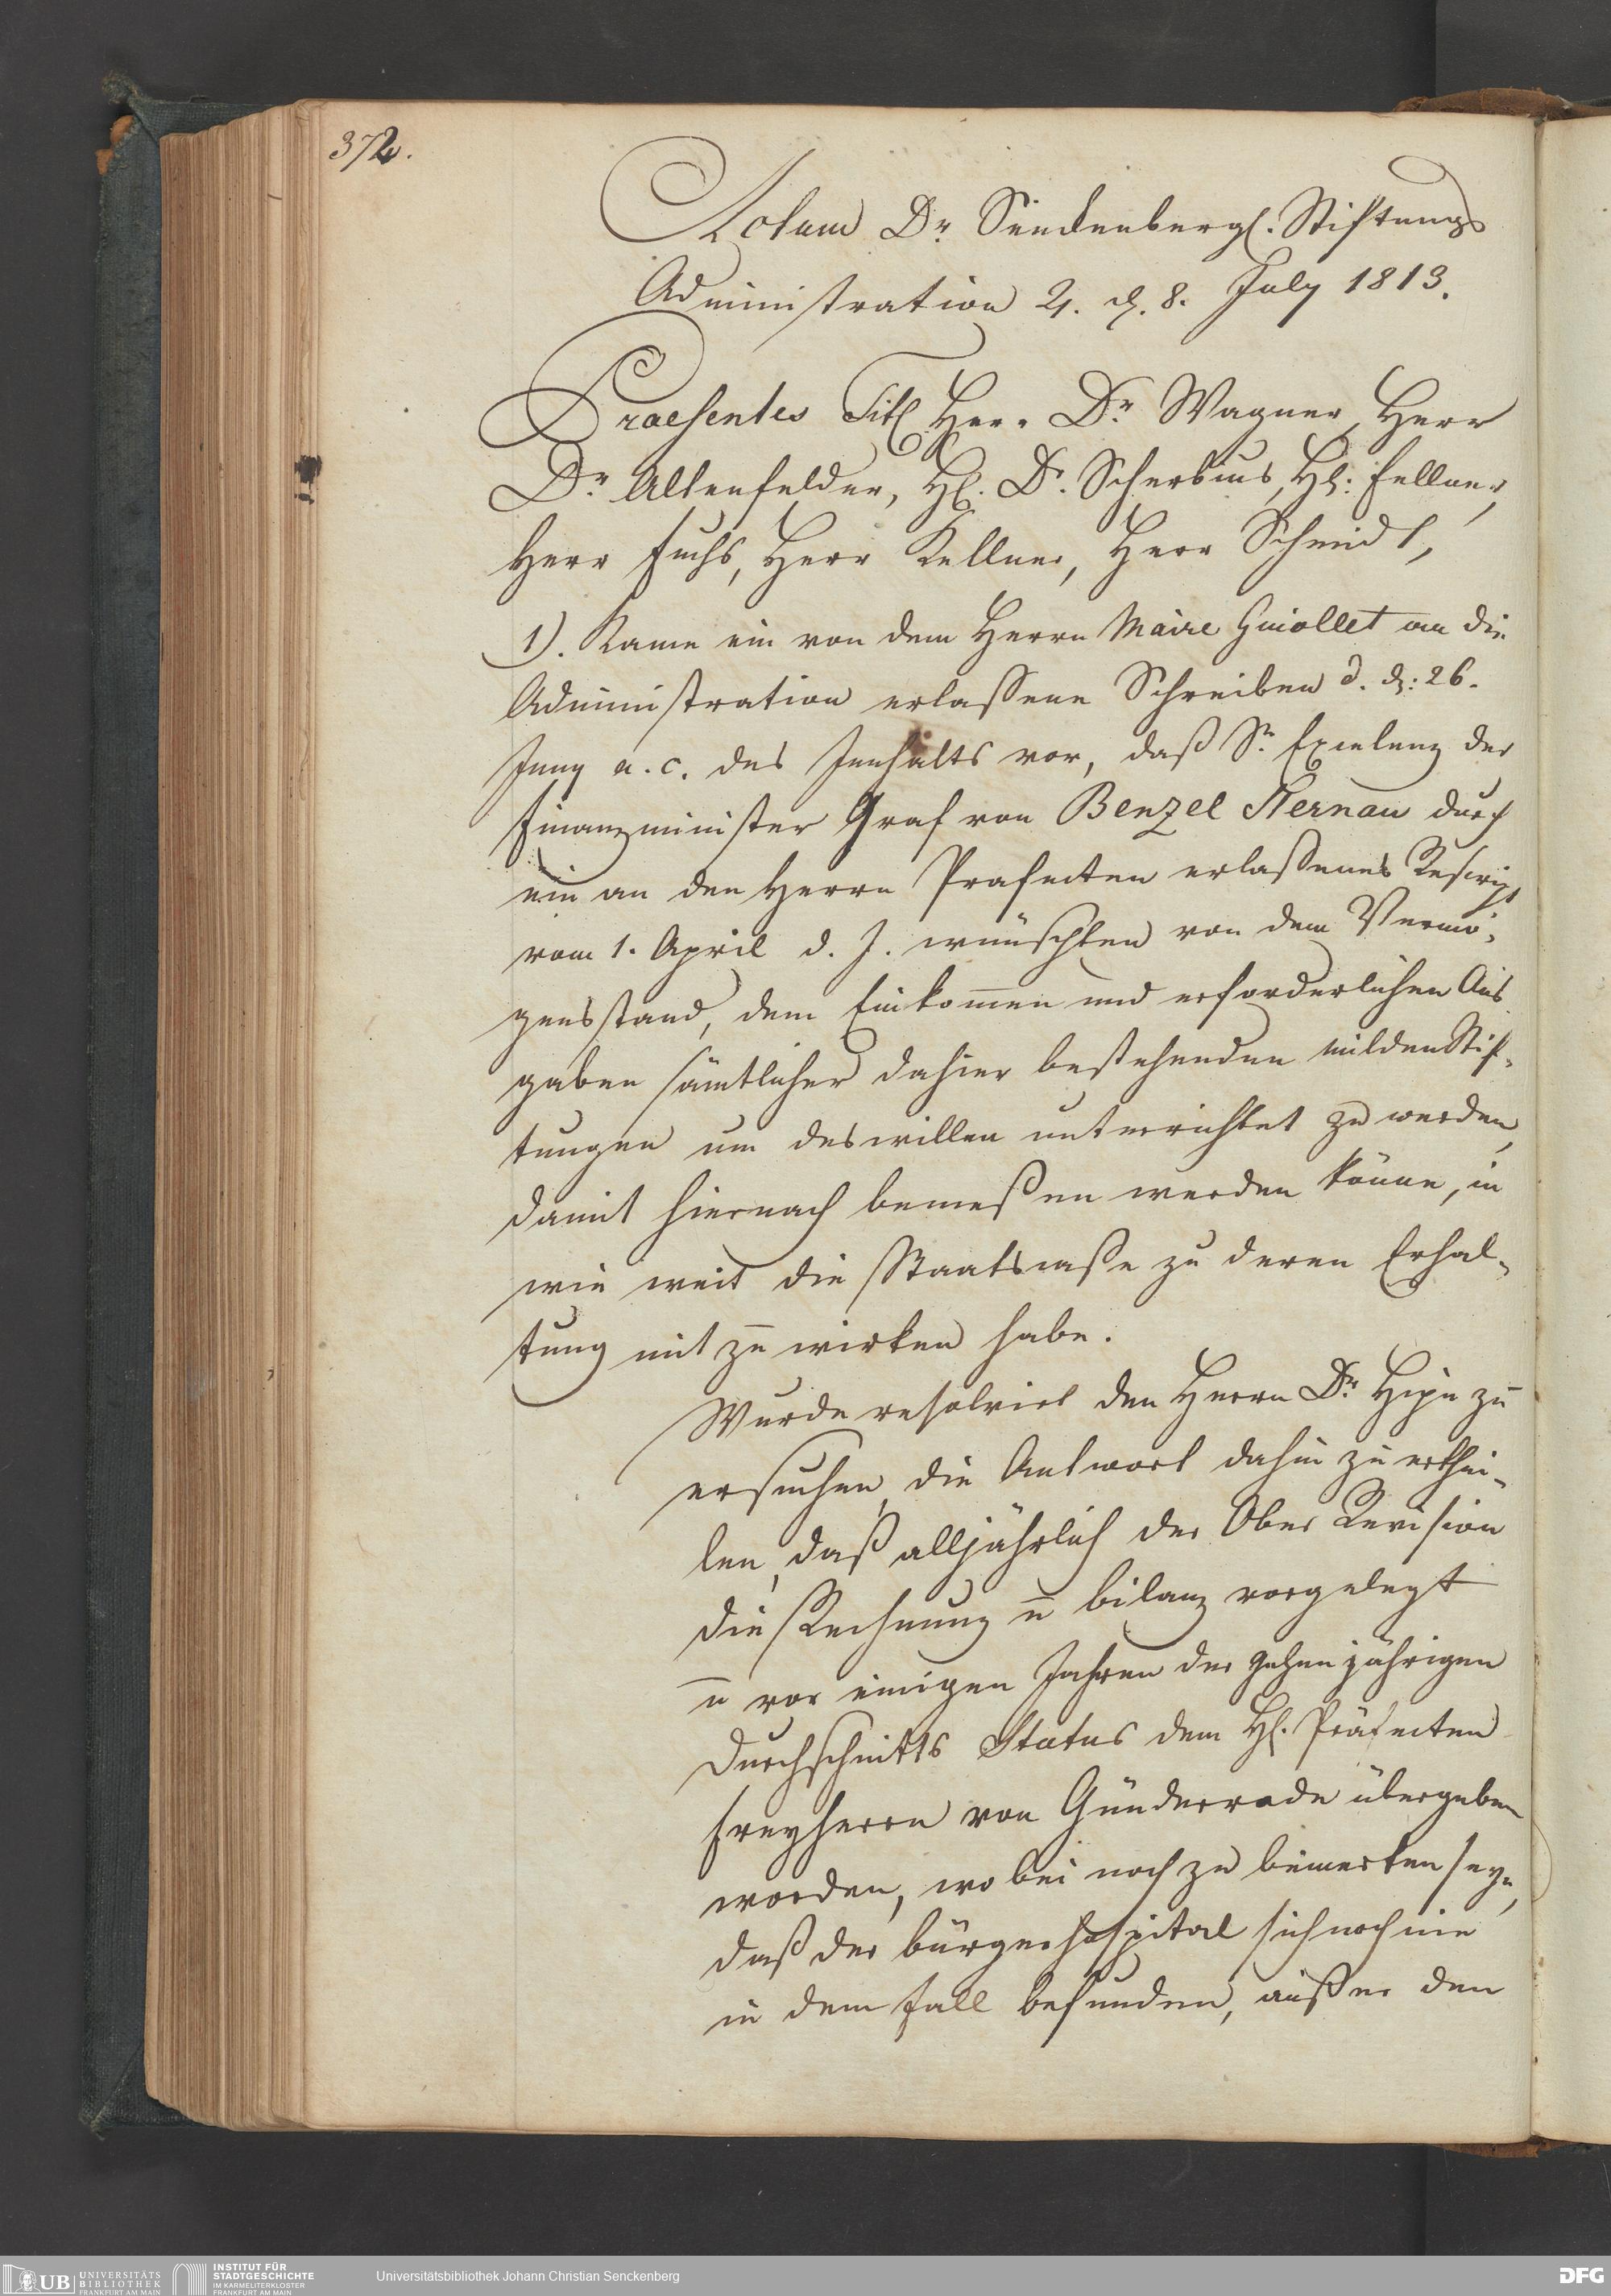 372.
Actum Dr. Senckenbergl. Stiftungs
Administration 4. d. 8. July 1813.
Praesentes Titl Herr Dr. Wagner, Herr
Dr. Altenfelder, Hl. Dr. Scherbius, Hl: Fellner,
Herr Fuchs, Herr Kellner, Herr Schmidt,
1). Kame ein von dem Herrn Maire Guiollet an die
Administration erlaßene Schreiben d. d: 26.
Juny a. c. des Innhalts vor, daß Sr. Excelenz der
Finanzminister Graf von Benzel Sternau durch
ein an den Herrn Prafecten erlaßenes Rescript
vom 1. April d. J. wünschten von dem Vermö-
gensstand, dem Einkom̅en und erforderlichen Aus
gaben sämtlicher dahier bestehenden milden Stif-
tungen um deswillen unterrichtet zu werden,
damit hiernach bemeßen werden könne, in
wie weit die Staatscaße zu deren Erhal-
tung mit zu wirken habe.
Wurde resolvirt den Herrn Dr. zu
ersuchen, die Antwort dahin zu erthei-
len, daß alljährlich der Ober Revision
die Rechnung u̅ bilanz vorgelegt
u̅ vor einigen Jahren der zehenjährigen
Durchschnitts Status dem Hl. Präfecten
Freyherrn von Günderrode übergeben
worden, wo bei noch zu bemerken seye,
daß der bürgerhospital sich noch nie
in dem Fall befunden, außer den
UB UNIVERSITÄTS
BIBLIOTHEK
FRANKFURT AM MAIN
INSTITUT FÜR
STADTGESCHICHTE
IM KARMELITERKLOSTER
FRANKFURT AM MAIN
Universitätsbibliothek Johann Christian Senckenberg
DFG